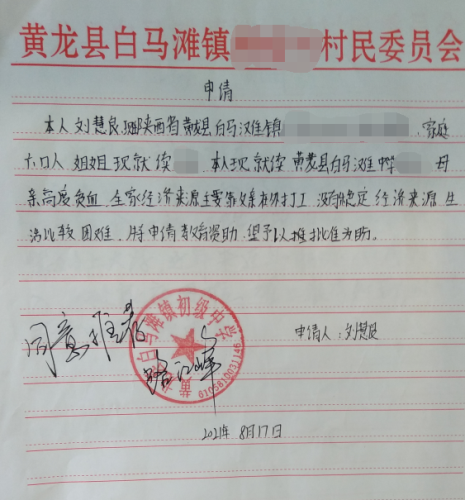 黄龙县白马滩镇 村民委员会
申请
本人刘慧良,现陕西省黄龙县白马滩镇 ,家庭
六口人 姐姐现就读 本人现就读黄龙县白马滩 母
亲高度贫血,全家经济来源主要靠父亲 打工,没有稳定经济来源,生
活比较困难。特申请教育资助,望予以 批准为盼。
同意推荐
申请人:刘慧良
黄龙县白马滩镇初级中学
6106310031146
2021年8月17日